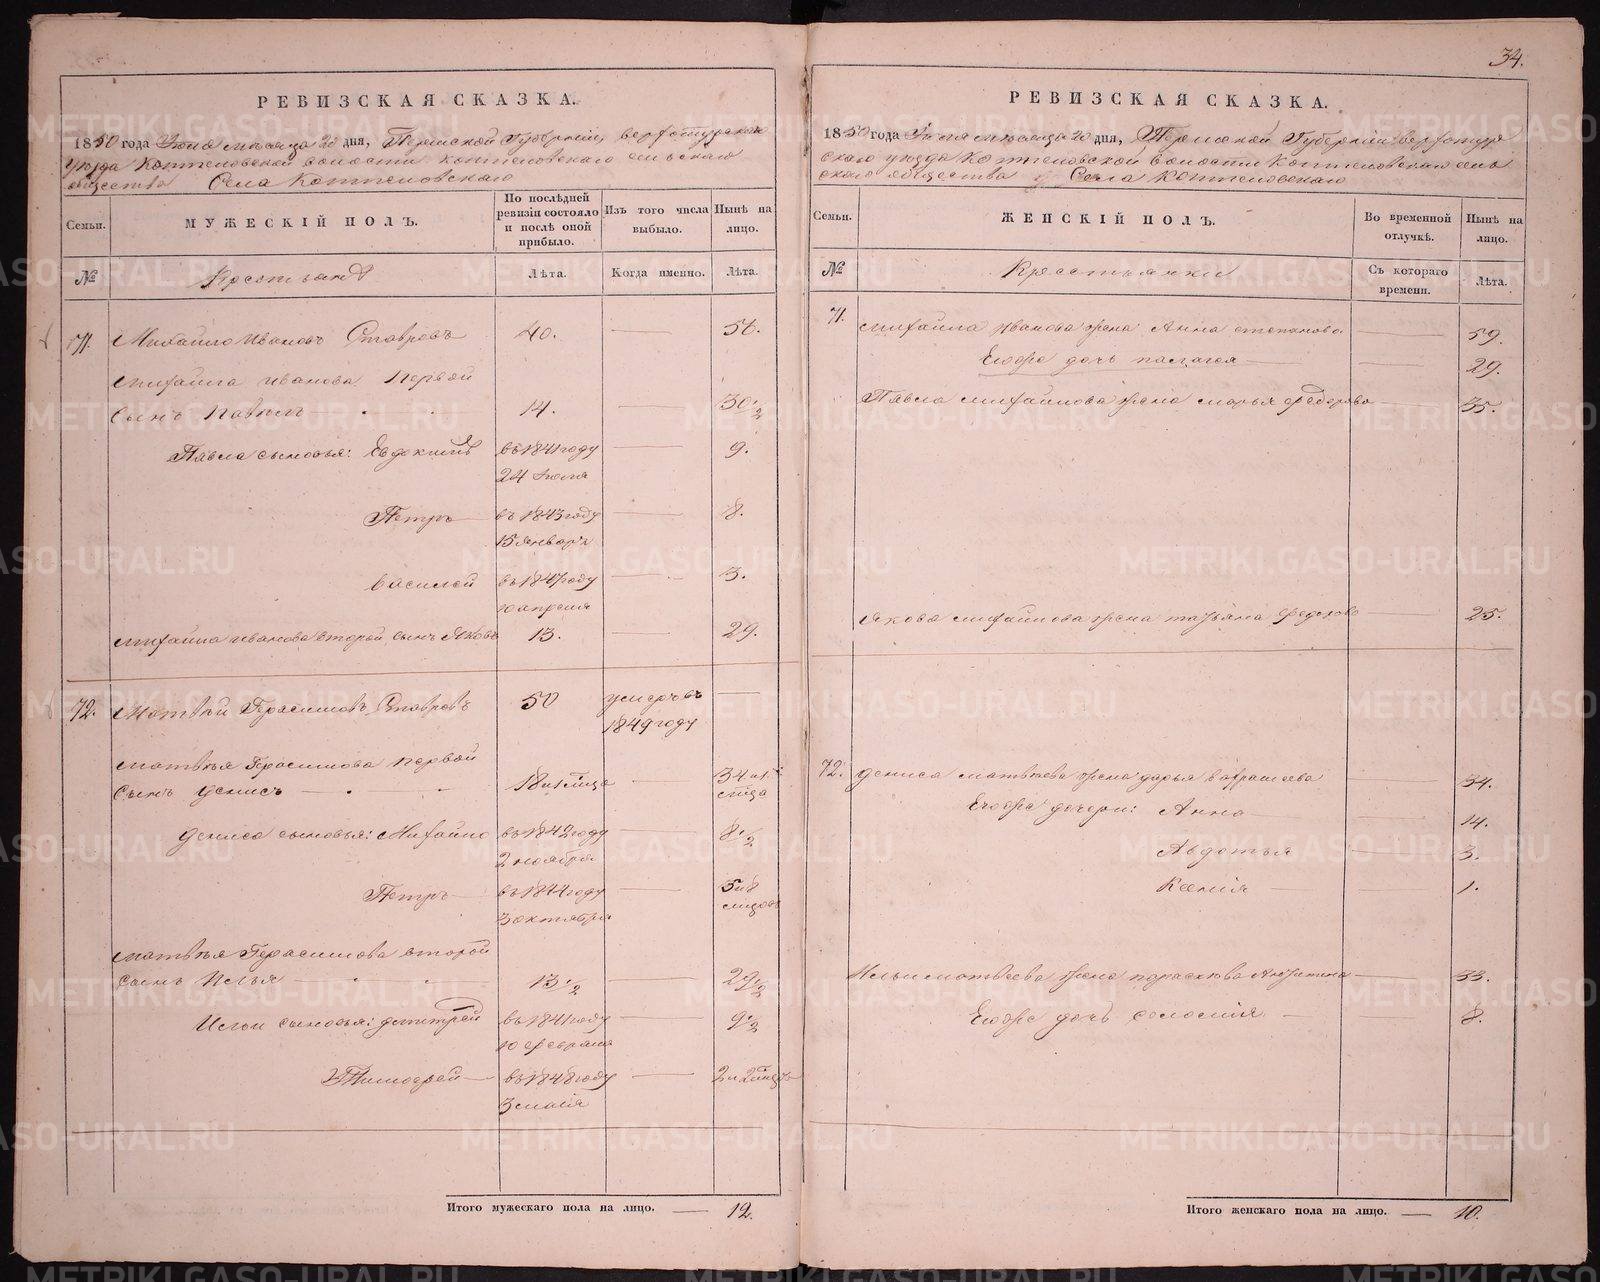 34.
РЕВИЗСКАЯ СКАЗКА.
1850 года Июня месяца 20 дня, Пермской Губернии, верхотурскаго
уезда Коптеловской волости коптеловскаго сельскаго
общества Села Коптеловскаго
Семьи.
МУЖЕСКІЙ ПОЛЪ.
По послѣдней ревизіи состояло и послѣ оной прибыло.
Изъ того числа выбыло.
Нынѣ на лицо.
№
Крестьянъ
Лѣта.
Когда именно.
Лѣта.
71. Михайло Ивановъ Ставровъ 40. 56.
Михайла Иванова Первой
сынъ Павелъ 14. 30 1/2
Павла сыновья: Евдокимъ въ 1841 году 9.
24 Июля
Петръ въ 1843 году 8.
15 января
Василей въ 1847 году 3.
10 апреля
Михайла Иванова второй сынъ Яковъ 13. 29.
72. Матвѣй Герасимовъ Ставровъ 50 умеръ въ
1849 году
Матвѣя Герасимова первой
сынъ Денисъ 18
Дениса сыновья: Михайло въ 1842 году 8 1/2
2 ноября
Петръ въ 1844 году 5 и 8
3 октября
Матвѣя Герасимова второй
сынъ Илья 13 1/2 29 1/2
Ильи сыновья: Дмитрей въ 1841 году 9 1/2
10 февраля
Тимофей въ 1848 году
3 мая
Итого мужескаго пола на лицо. 12.
РЕВИЗСКАЯ СКАЗКА.
1850 года Июня месяца 20 дня, Пермской Губернии верхотур
скаго уезда Коптеловской волости Коптеловскаго сель
скаго общества Села Коптеловскаго
Семьи.
ЖЕНСКІЙ ПОЛЪ.
Во временной отлучкѣ.
Нынѣ на лицо.
№
Крестьянки
Съ котораго времени.
Лѣта.
71. Михайла Иванова жена Анна степанова 59.
Егоже дочь палагея 29.
Павла Михайлова жена Марья Федорова 35.
Якова Михайлова жена татьяна 25.
72. Дениса Матвѣева жена дарья 34.
Егоже дочери: Анна 14.
Авдотья 3.
Ксенія 1.
Ильи Матвѣева жена 33.
Егоже дочь соломія 8.
Итого женскаго пола на лицо. 10.
METRIKI.GASO-URAL.RU